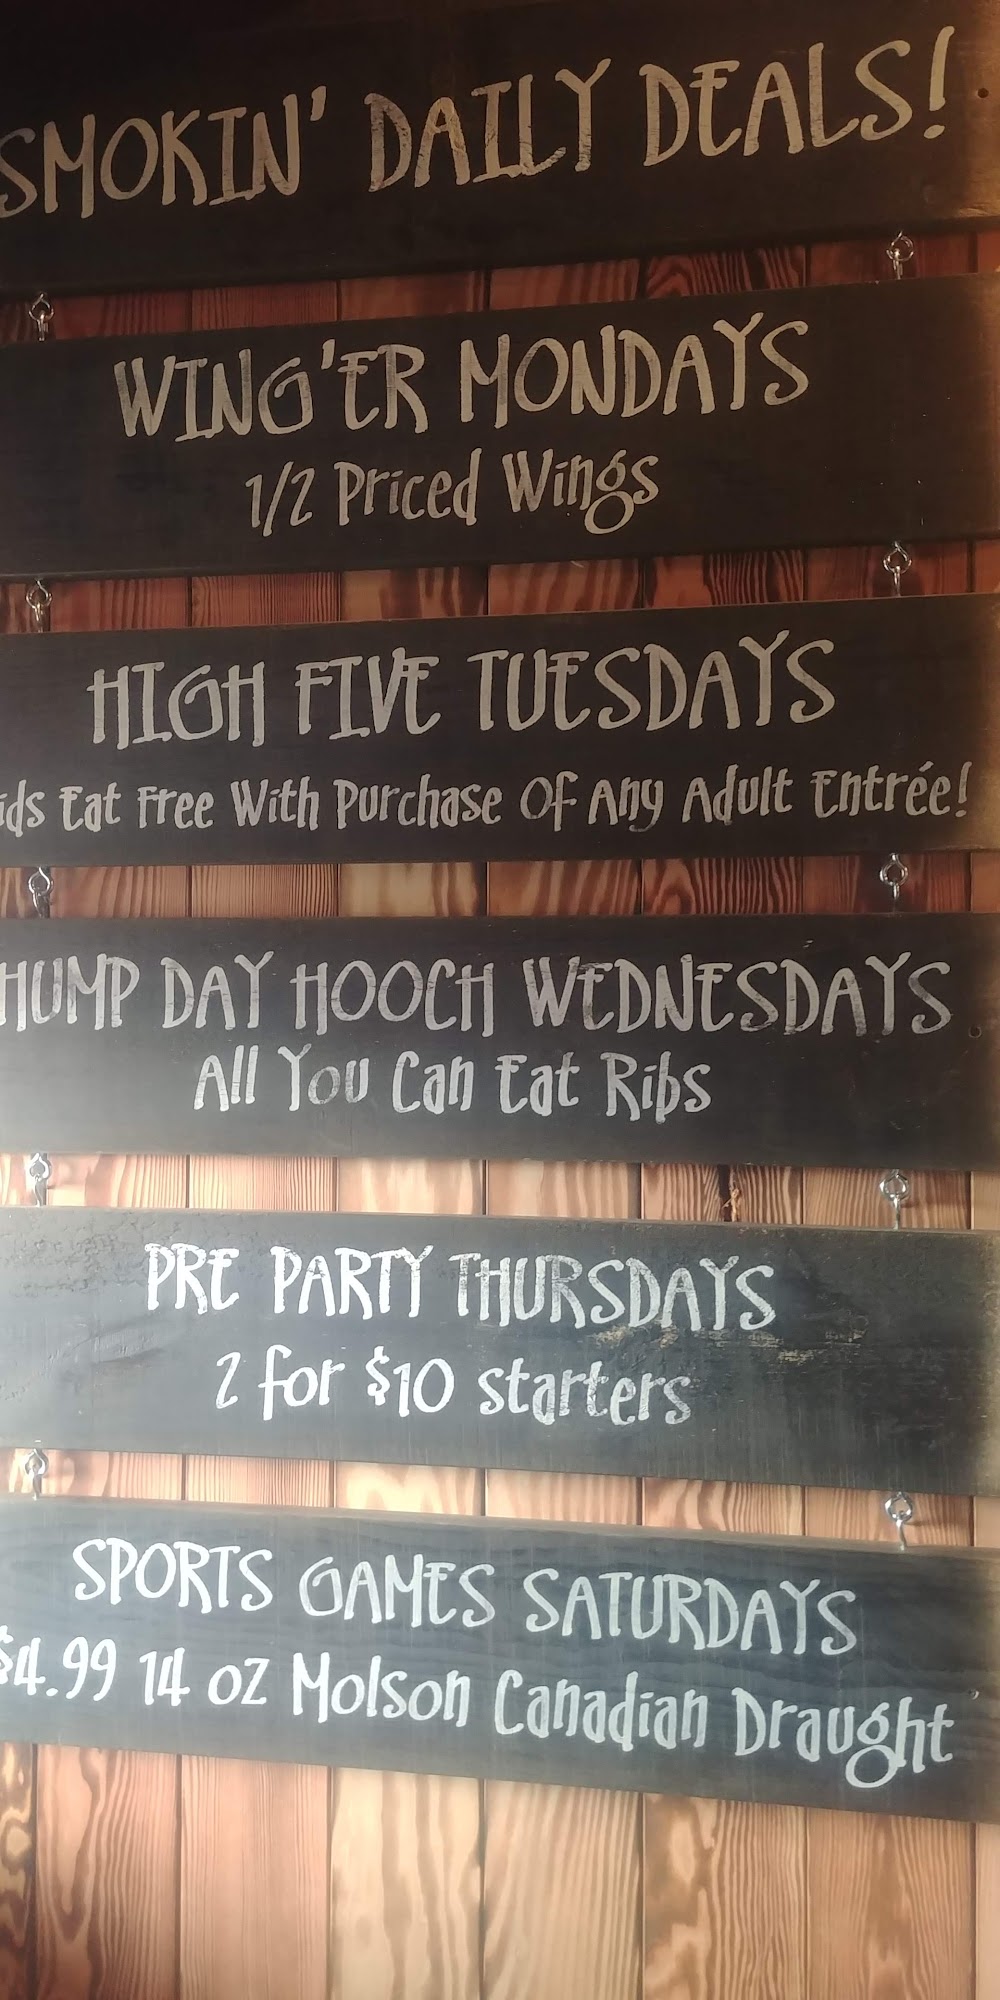 SMOKIN' DAILY DEALS!
WING'ER MONDAYS
1/2 Priced Wings
HIGH FIVE TUESDAYS
ids Eat Free With Purchase Of Any Adult Entrée!
HUMP DAY HOOCH WEDNESDAYS
All You Can Eat Ribs
PRE PARTY THURSDAYS
2 for $10 starters
SPORTS GAMES SATURDAYS
$4.99 14 oz Molson Canadian Draught